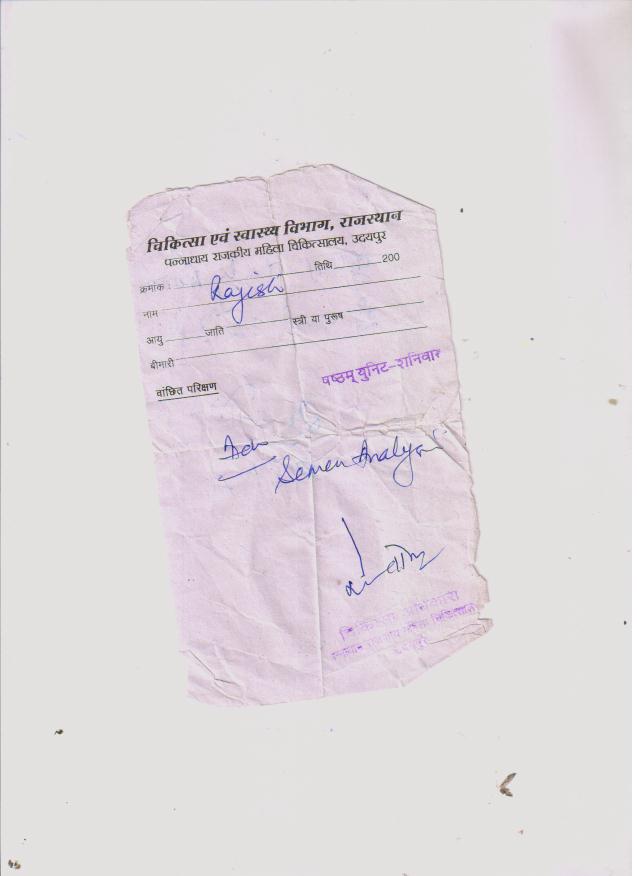 चिकित्सा एवं स्वास्थ्य विभाग, राजस्थान
पन्नाधाय राजकीय महिला चिकित्सालय, उदयपुर
क्रमांक : तिथि 200
नाम Rajish
आयु जाति स्त्री या पुरूष
बीमारी
वांछित परिक्षण
षष्ठम् युनिट-शनिवार
Adv
Semen Analysis
चिकित्सा अधिकारी
राजकीय महिला चिकित्सालय
उदयपुर